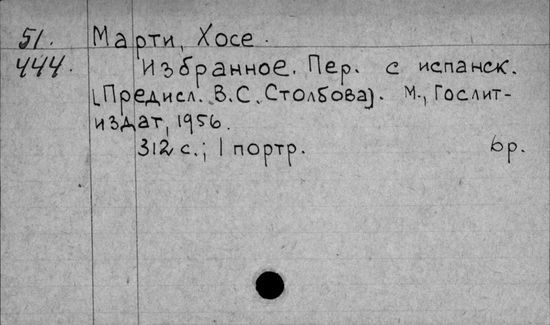 51. Марти, Хосе.
444. Избранное. Пер. с испанск.
[Предисл. В.С. Столбова]. М., Гослит-
издат, 1956.
312 с.; 1 портр. 6р.